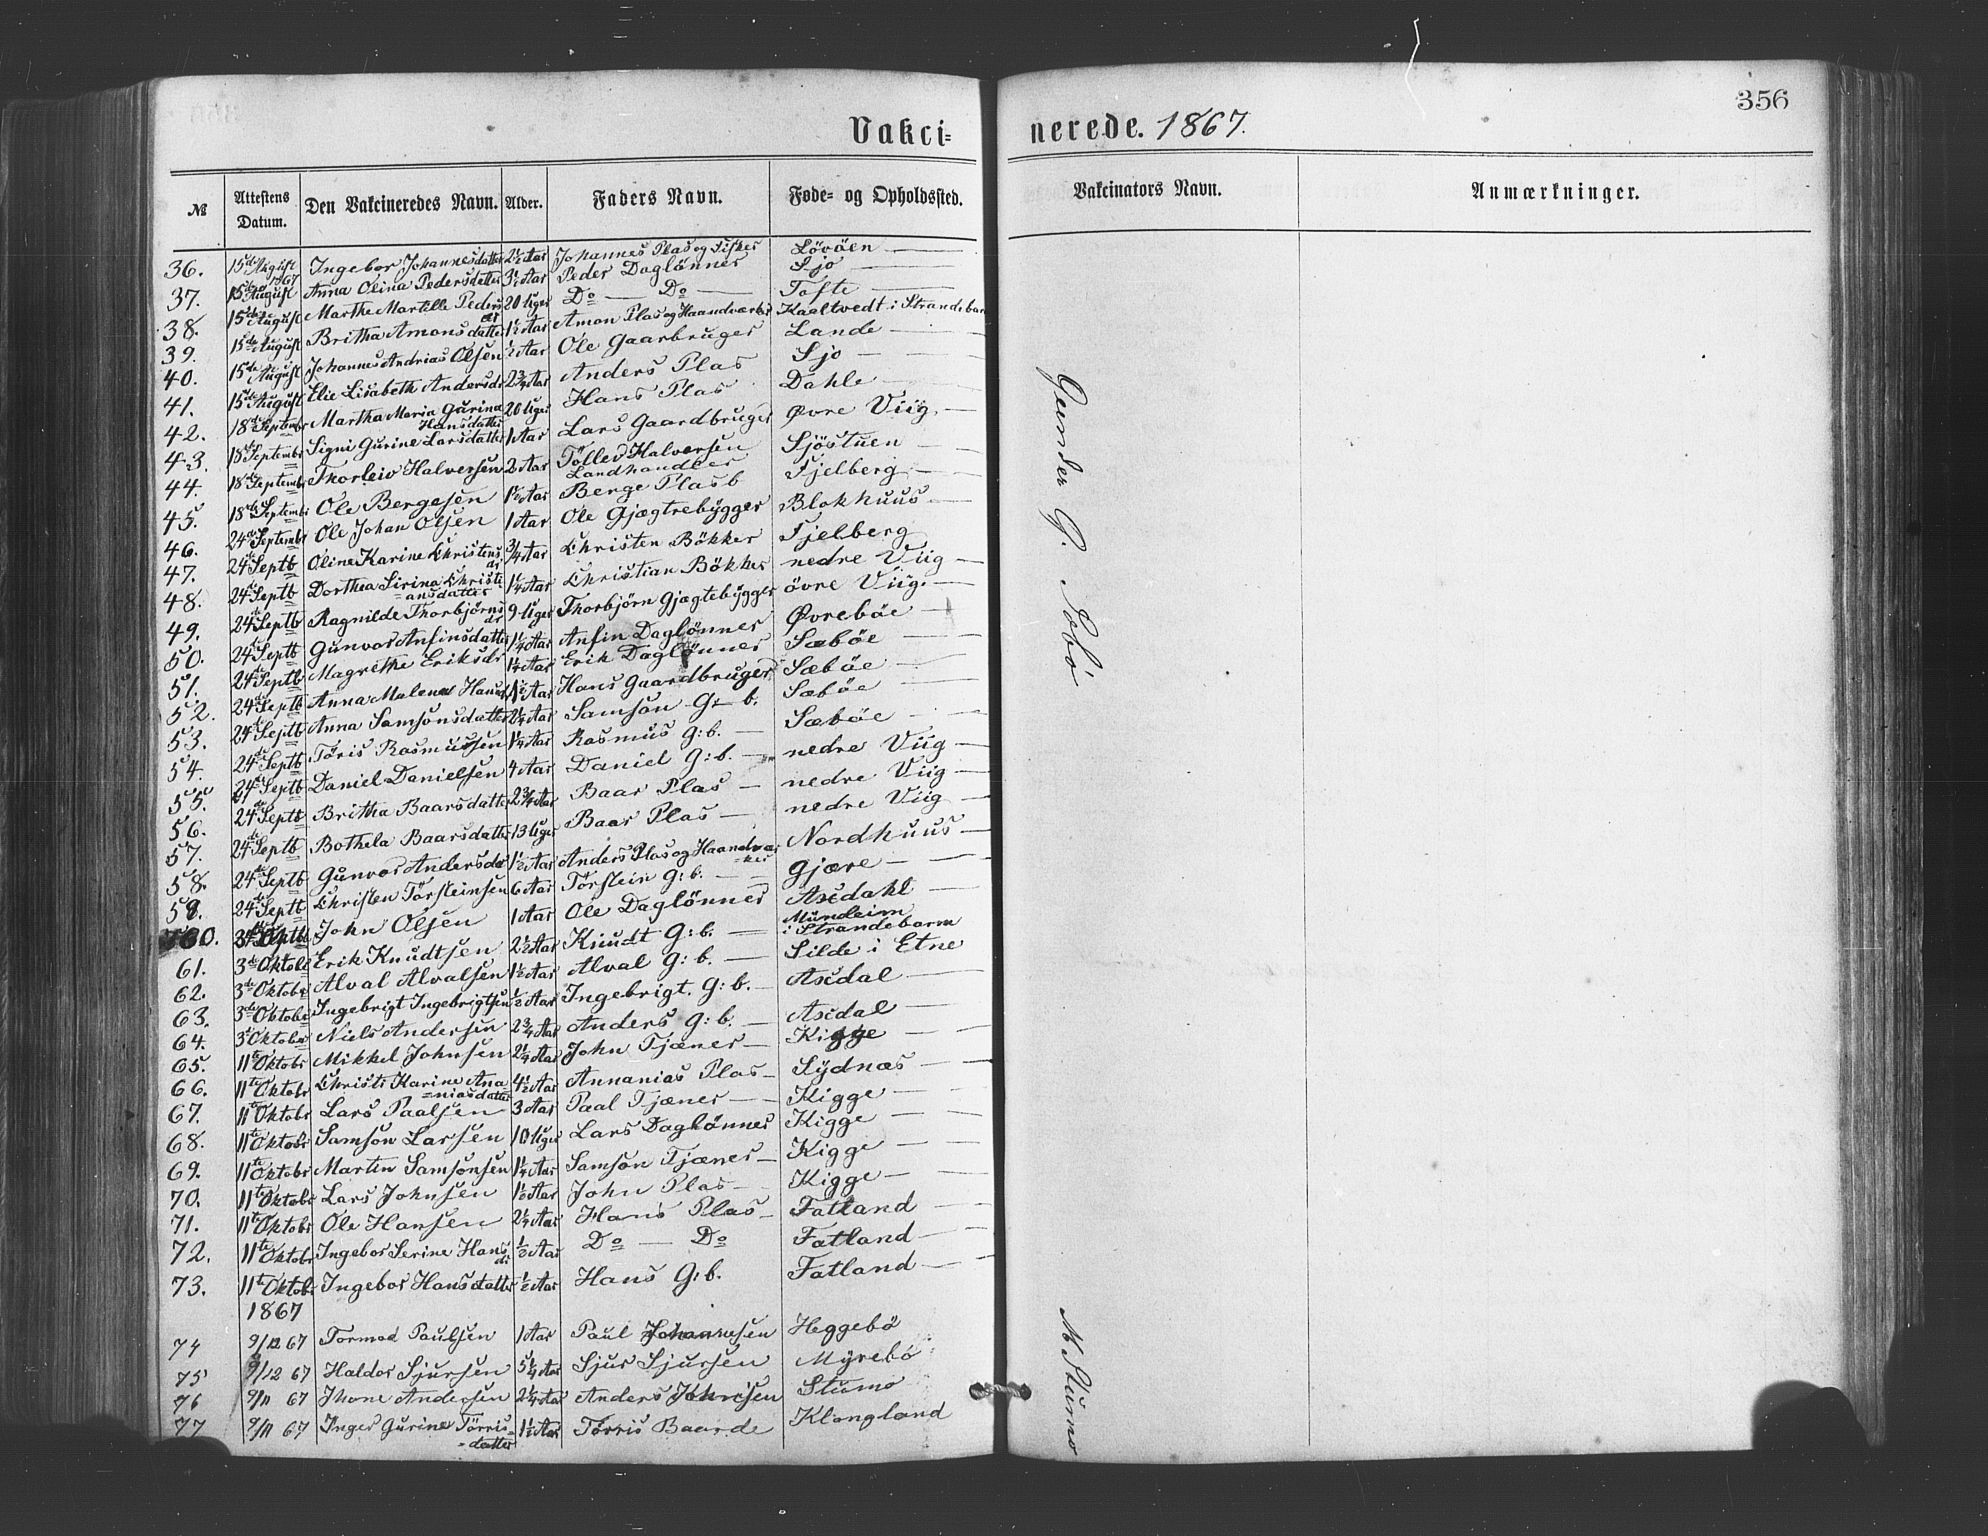 356
Vakci= nerede. 1867.
№ | Attestens Datum. | Den Vakcineredes Navn. | Alder. | Faders Navn. | Føde- og Opholdssted. | Vakcinators Navn. | Anmærkninger.
36. 15de August 1867 Ingebor Johannesdatter 2½ Aar Johannes Plas og Fisker Lövöen —
37. 15de August Anna Olina Pedersdatter 3½ Aar Peder Daglönner Sjo —
38. 15de August Marthe Martille Peders dr 20 Uger Do — Do — Tofte —
39. 15de August Britha Amonsdatter 1½ Aar Amon Plas og Haandværker Kaaltvedt i Strandebarm
40. 15de August Johannes Andrias Olsen ½ Aar Ole Gaarbruger Lande —
41. 15de August Elie Lisabeth Andersdr 2¾ Aar Anders Plas Sjo —
42. 18de Septembr Martha Maria Gurina Hansdatter 20 Uger Hans Plas Dahle —
43. 18de Septembr Signi Gurine Larsdatter 1 Aar Lars Gaardbruger Øvre Viig. —
44. 18de Septembr Thorleiv Halversen 2 Aar Töllev Halversen Landhandler Sjöstuen —
45. 18de Septembr Ole Bergesen 1½ Aar Berge Plas b Fjelberg —
46. 24de Septembr Ole Johan Olsen 1 Aar Ole Gjægtrebygger Blokhuus —
47. 24de Septb Oline Karine Christens dr ¾ Aar Christen Bökker Fjelberg
48. 24de Septb Dorthea Sirina Christi =ansdatter 1¼ Aar Christian Bökker nedre Viig —
49. 24de Septb Ragnilde Thorbjörns dr 9 Uger Thorbjörn Gjægtebygger övre Viig. —
50. 24de Septb Gunvor Anfinsdatter 1¼ Aar Anfin Daglönner Øvrebøe —
51. 24de Septb Magrethe Eriksdr 1¼ Aar Erik Daglönner Sæbøe —
52. 24de Septb Anna Malena Hansd 1½ Aar Hans Gaardbruger Sæbøe —
53. 24de Septb Anna Samsonsdatter 2¼ Aar Samson G: b. Sæbøe —
54. 24de Septb Töris Rasmussen 1¼ Aar Rasmus G: b. — Sæbøe —
55. 24de Septb Daniel Danielsen 4 Aar Daniel G: b. — nedre Viig —
56. 24de Septb Britha Baarsdatter 2¾ Aar Baar Plas — nedre Viig —
57. 24de Septb Bothela Baarsdatter 13 Uger Baar Plas — nedre Viig —
58. 24de Septb Gunvor Andersdr 1½ Aar Anders Plas og Haandvær =ker Nordhuus —
59. 24de Septb Christen Törsteinsen 6 Aar Törstein G: b. — Gjære —
60. 24de Septb John Olsen 1 Aar Ole Daglönner Axdahl —
61. 3de Oktobr Erik Knudtsen 2½ Aar Knudt G: b. — Mundeim i Strandebarm
62. 3de Oktobr Alval Alvalsen 1½ Aar Alval G: b. — Silde i Etne
63. 3de Oktobr Ingebrigt Ingebrigtsen ½ Aar Ingebrigt. G: b. — Axdal —
64. 3de Oktobr Niels Andersen 2¾ Aar Anders G: b. — Axdal —
65. 11te Oktobr Mikkel Johnsen 2¼ Aar John Tjæner — Kigge —
66. 11te Oktobr Christi Karine Ana =niasdatter 4½ Aar Annanias Plas — Sydnæs —
67. 11te Oktobr Lars Paalsen 3 Aar Paal Tjæner — Kigge —
68. 11te Oktobr Samson Larsen 10 Uger Lars Daglönner Kigge —
69. 11te Oktobr Martin Samsonsen 1¼ Aar Samson Tjæner — Kigge —
70. 11te Oktobr Lars Johnsen 1½ Aar John Plas — Kigge —
71. 11te Oktobr Ole Hansen 2¼ Aar Hans Plas — Fatland —
72. 11te Oktobr Ingebor Serine Hans dr ½ Aar Do — Do Fatland —
73. 11te Oktobr Ingebor Hansdatter ½ Aar Hans G: b. Fatland —
1867
74 9/12 67 Tormod Paulsen 1 Aar Paul Johannesen Heggebö
75 9/12 67 Haldor Sjursen 5¼ Aar Sjur Sjursen Myrebö
76 9/11 67 Jhone Andersen 2¼ Aar Anders Johnsen Stumo
77 9/11 67 Inger Gurine Törris- =datter 1½ Aar Törris Baarde Klongland
Gunder G. Sobö
M Stumo